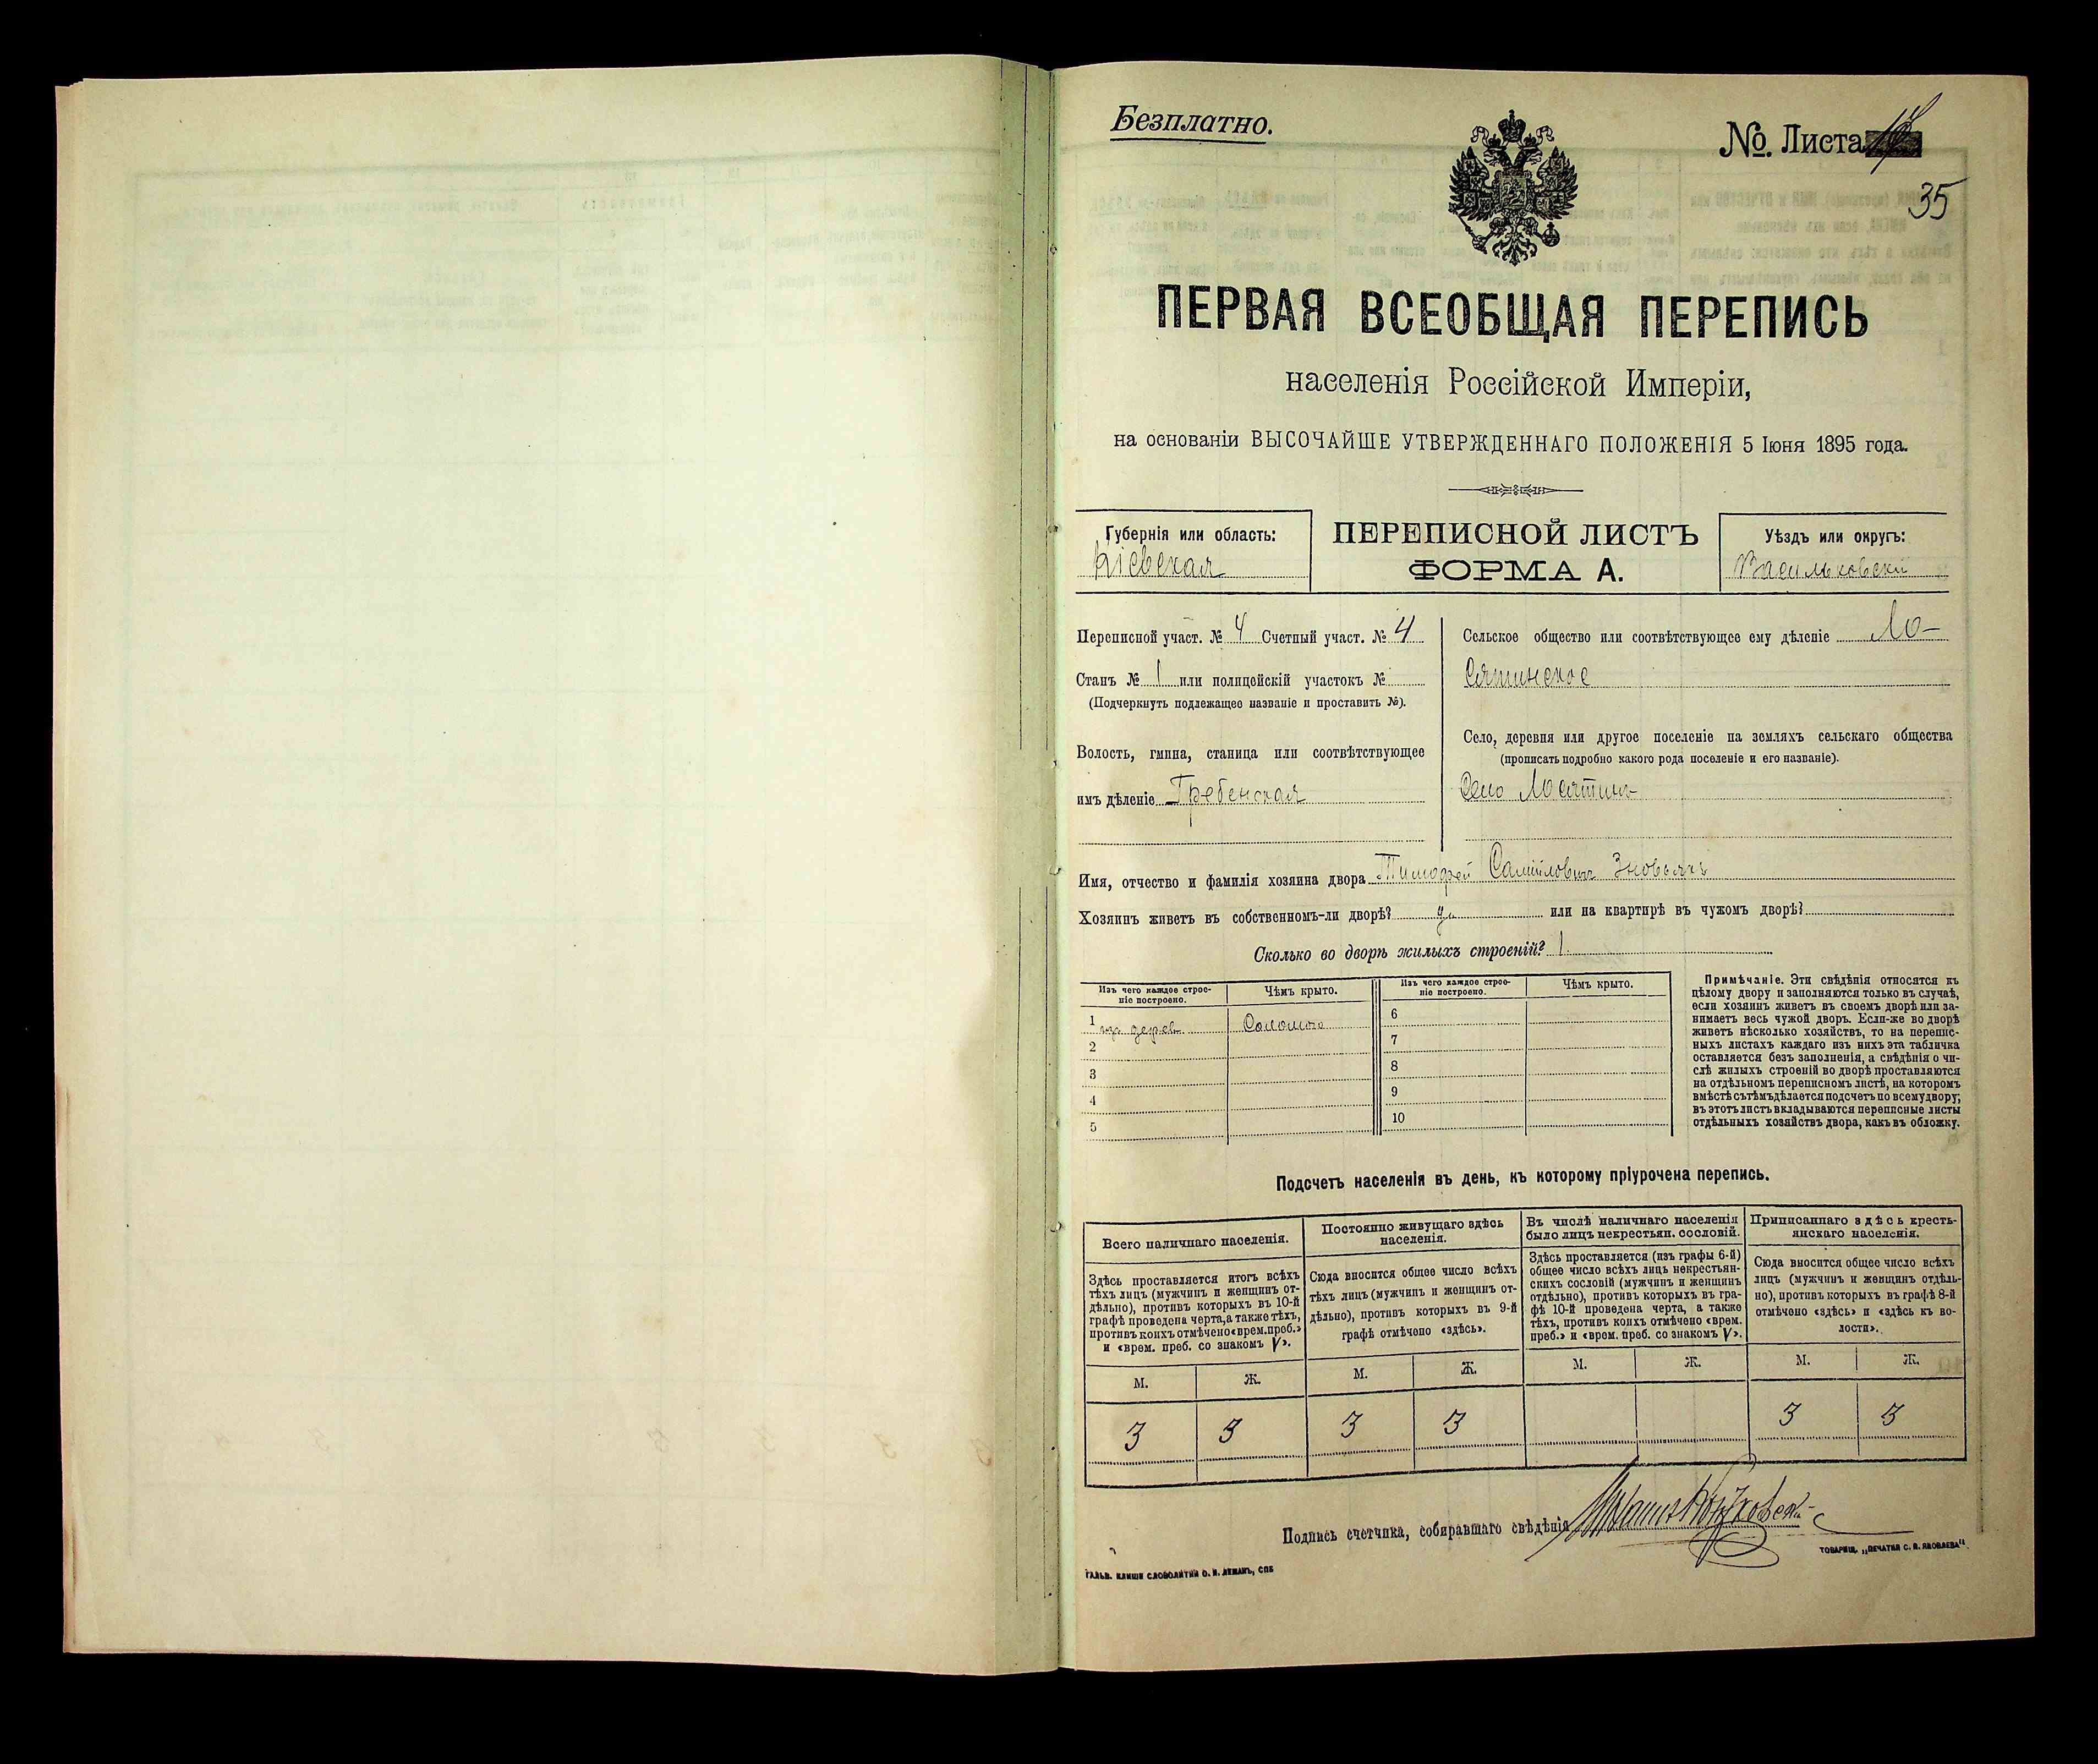 Безплатно.
№. Листа
35
ПЕРВАЯ ВСЕОБЩАЯ ПЕРЕПИСЬ
населенія Россійской Имперіи,
на основаніи ВЫСОЧАЙШЕ УТВЕРЖДЕННАГО ПОЛОЖЕНІЯ 5 Іюня 1895 года.
Губернія или область:
Кіевская
ПЕРЕПИСНОЙ ЛИСТЪ
ФОРМА А.
Уѣздъ или округъ:
Васильковскій
Переписной участ. № 4 Счетный участ. № 4
Станъ № 1 или полицейскій участокъ №
(Подчеркнуть подлежащее названіе и проставить №).
Волость, гмина, станица или соотвѣтствующее
имъ дѣленіе Гребенская
Сельское общество или соотвѣтствующее ему дѣленіе Ло-
сятинское
Село, деревня или другое поселеніе на земляхъ сельскаго общества
(прописать подробно какого рода поселеніе и его названіе).
Село Лосятинъ
Имя, отчество и фамилія хозяина двора Тимофей Самійловичъ
Хозяинъ живетъ въ собственномъ-ли дворѣ? да или на квартирѣ въ чужомъ дворѣ?
Сколько во дворѣ жилыхъ строеній? 1
Изъ чего каждое строе-
ніе построено.
Чѣмъ крыто.
Изъ чего каждое строе-
ніе построено.
Чѣмъ крыто.
1 изъ дерев. Соломою
2
3
4
5
6
7
8
9
10
Примѣчаніе. Эти свѣдѣнія относятся къ
цѣлому двору и заполняются только въ случаѣ,
если хозяинъ живетъ въ своемъ дворѣ или за-
нимаетъ весь чужой дворъ. Если-же во дворѣ
живетъ нѣсколько хозяйствъ, то на перепис-
ныхъ листахъ каждаго изъ нихъ эта табличка
оставляется безъ заполненія, а свѣдѣнія о чи-
слѣ жилыхъ строеній во дворѣ проставляются
на отдѣльномъ переписномъ листѣ, на которомъ
вмѣстѣ съ тѣмъ дѣлается подсчетъ по всему двору;
въ этотъ листъ вкладываются переписные листы
отдѣльныхъ хозяйствъ двора, какъ въ обложку.
Подсчетъ населенія въ день, къ которому пріурочена перепись.
Всего наличнаго населенія.
Здѣсь проставляется итогъ всѣхъ
тѣхъ лицъ (мужчинъ и женщинъ от-
дѣльно), противъ которыхъ въ 10-й
графѣ проведена черта, а также тѣхъ,
противъ коихъ отмѣчено «врем. преб.»
и «врем. преб. со знакомъ V».
М. Ж.
3 3
Постоянно живущаго здѣсь
населенія.
Сюда вносится общее число всѣхъ
тѣхъ лицъ (мужчинъ и женщинъ от-
дѣльно), противъ которыхъ въ 9-й
графѣ отмѣчено «здѣсь».
М. Ж.
3 3
Въ числѣ наличнаго населенія
было лицъ некрестьян. сословій.
Здѣсь проставляется (изъ графы 6-й)
общее число всѣхъ лицъ некрестьян-
скихъ сословій (мужчинъ и женщинъ
отдѣльно), противъ которыхъ въ гра-
фѣ 10-й проведена черта, а также
тѣхъ, противъ коихъ отмѣчено «врем.
преб.» и «врем. преб. со знакомъ V».
М. Ж.
Приписаннаго здѣсь кресть-
янскаго населенія.
Сюда вносится общее число всѣхъ
лицъ (мужчинъ и женщинъ отдѣль-
но), противъ которыхъ въ графѣ 8-й
отмѣчено «здѣсь» и «здѣсь къ во-
лости».
М. Ж.
3 3
Подпись счетчика, собиравшаго свѣдѣнія
ГАЛЬВ. КЛИШЕ СЛОВОЛИТНИ О. И. ЛЕМАНЪ, СПБ
ТОВАРИЩ. „ПЕЧАТНЯ С. П. ЯКОВЛЕВА“